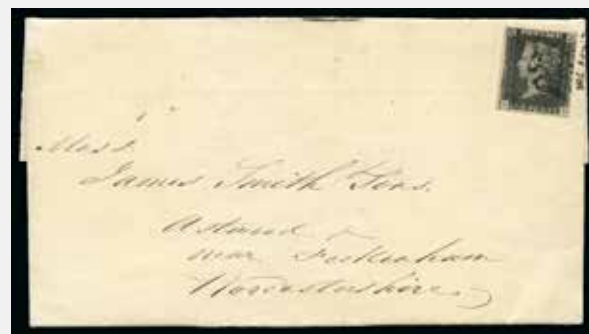 Mess.
James Smith & Sons.
Astwood
near Feckenham
Worcestershire